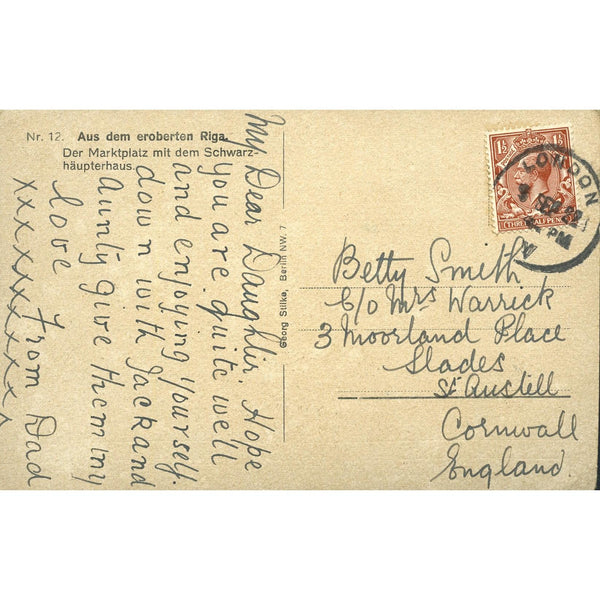 Nr. 12. Aus dem eroberten Riga.
Der Marktplatz mit dem Schwarz-
häupterhaus.
My Dear Daughter. Hope
you are quite well
and enjoying yourself.
down with Jack and
Aunty give them my
love From Dad
xxxxxxxxx
Georg Stilke, Berlin NW. 7
1½ 1½
THREE HALF PENCE
LONDON
PM
W
Betty Smith
C/o Mrs Warrick
3 Moorland Place
Slades
St Austell
Cornwall
England.